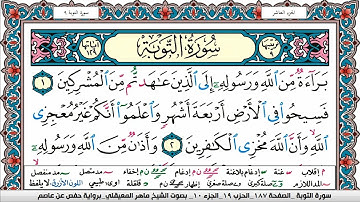 الجزء العاشر
سورة التوبة ٩
سُورَةُ التَّوْبَةِ
بَرَآءَةٌ مِّنَ ٱللَّهِ وَرَسُولِهِۦٓ إِلَى ٱلَّذِينَ عَٰهَدتُّم مِّنَ ٱلْمُشْرِكِينَ ١
فَسِيحُوا۟ فِى ٱلْأَرْضِ أَرْبَعَةَ أَشْهُرٍ وَٱعْلَمُوٓا۟ أَنَّكُمْ غَيْرُ مُعْجِزِى
ٱللَّهِ وَأَنَّ ٱللَّهَ مُخْزِى ٱلْكَٰفِرِينَ ٢ وَأَذَٰنٌ مِّنَ ٱللَّهِ وَرَسُولِهِۦٓ
سورة التوبة _ الصفحة ١٨٧ _ الحزب ١٩ _ الجزء ١٠ _ بصوت الشيخ ماهر المعيقلي _ برواية حفص عن عاصم